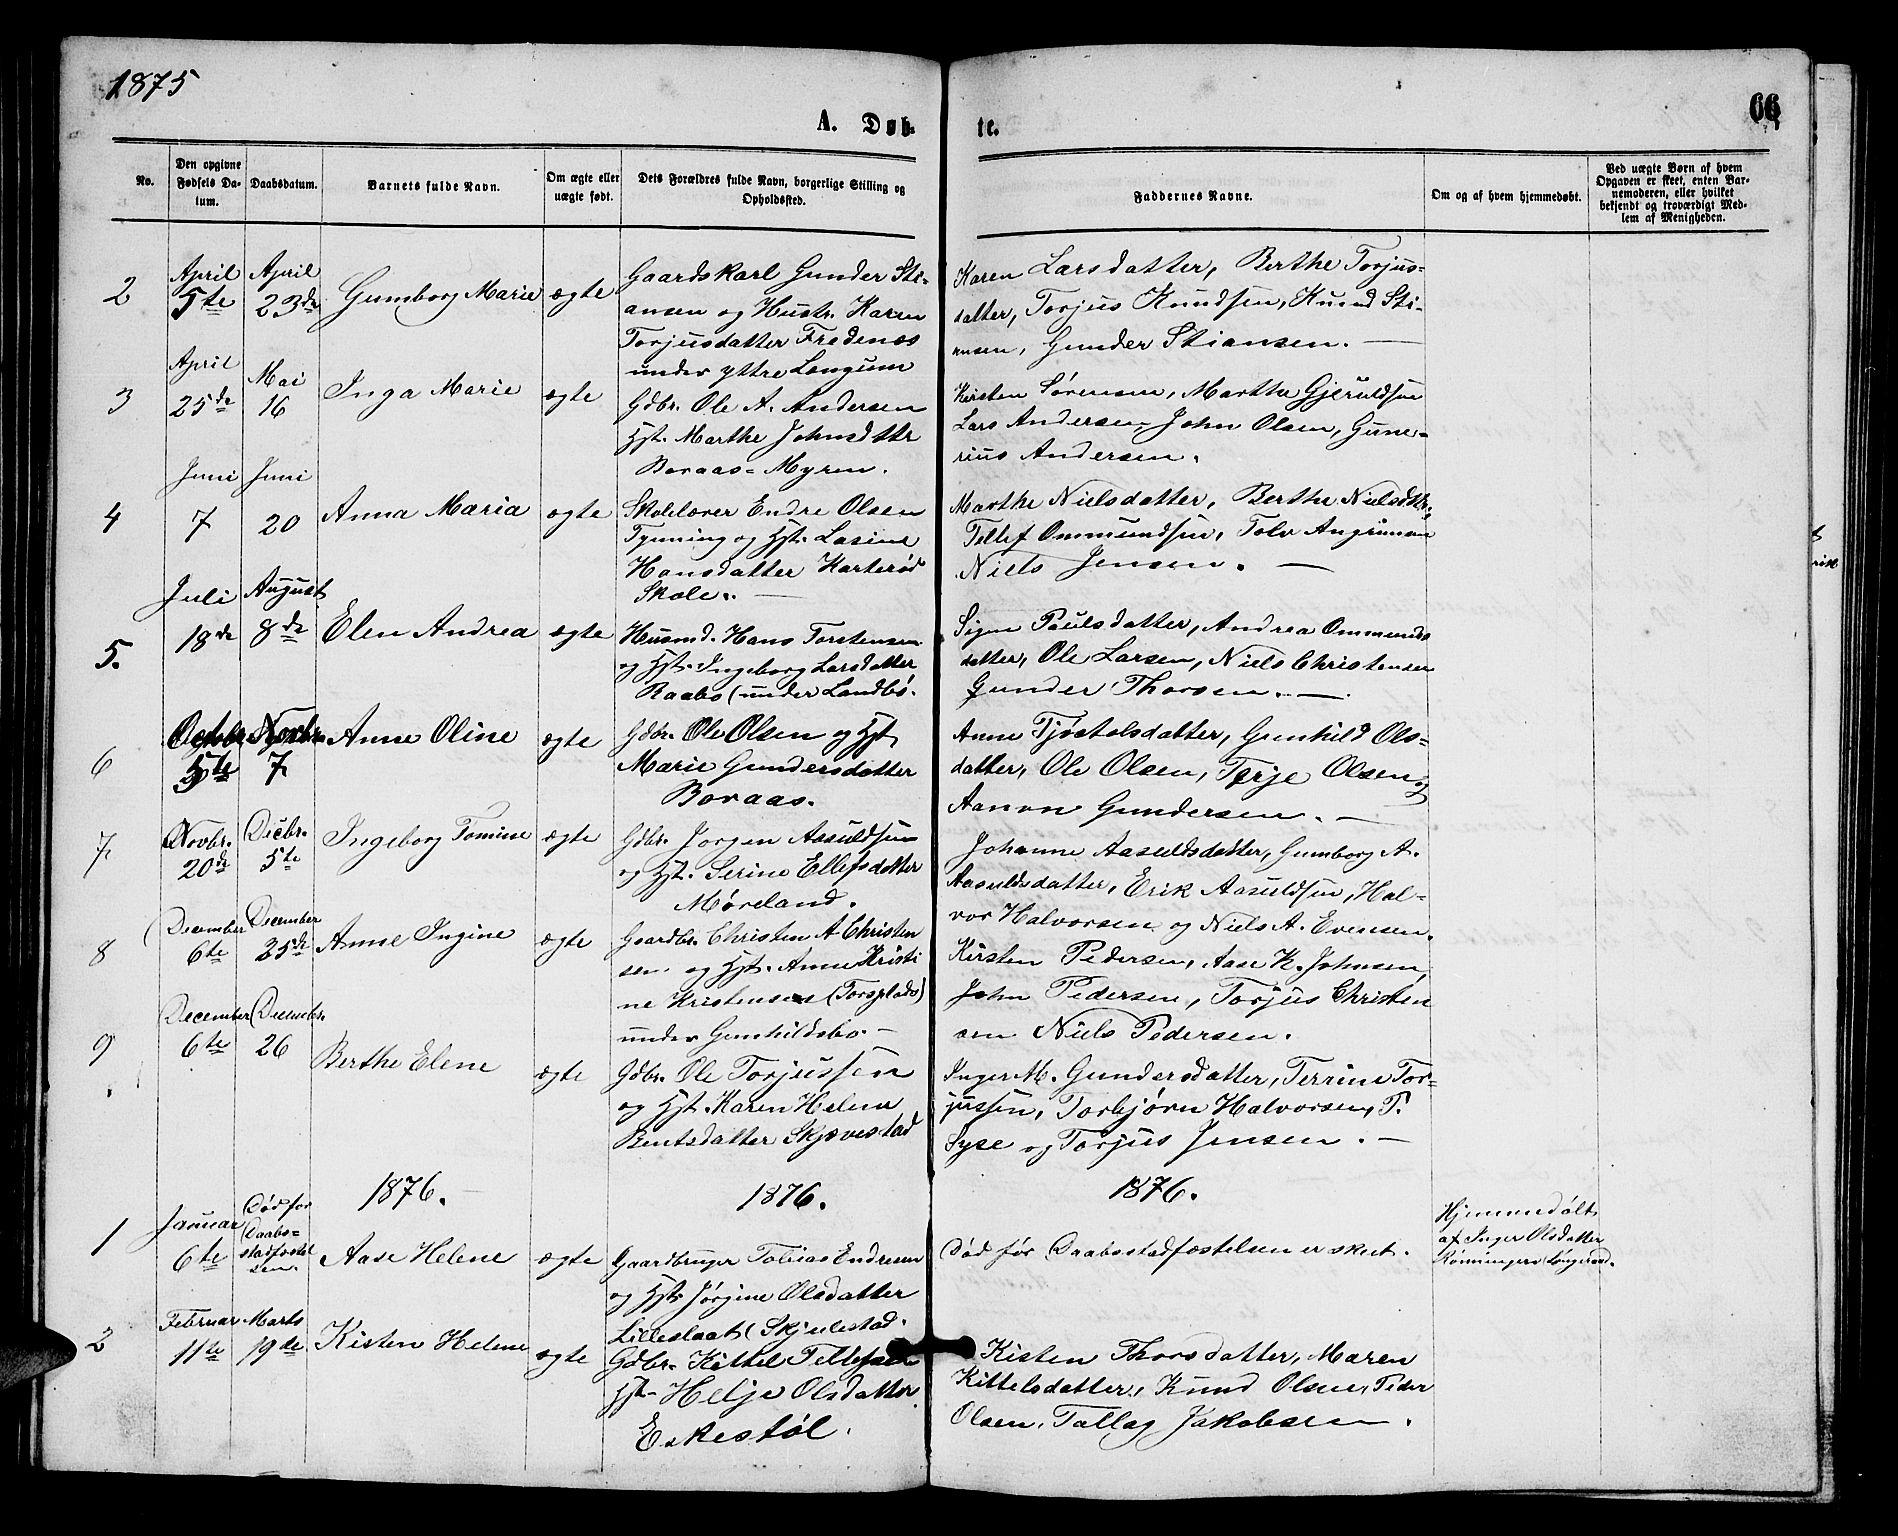 1875
66
A. Døb-
te.
No.
Den opgivne
Fødsels Da-
tum.
Daabsdatum.
Barnets fulde Navn.
Om ægte eller
uægte født.
Dets Forældres fulde Navn, borgerlige Stilling og
Opholdssted.
Faddernes Navne.
Om og af hvem hjemmedøbt.
Ved uægte Børn af hvem
Opgaven er skeet, enten Bar-
nemoderen, eller hvilket
bekjendt og troværdigt Med-
lem af Menigheden.
2
April
5te
April
23de
Gumborg Marie
ægte
Gaardskarl Gunder Sti-
ansen og Hustr. Karen
Torjusdatter Fredenæs
under yttre Longum
Karen Larsdatter, Berthe Torjus-
datter, Torjus Knudsen, Knud Sti-
ansen, Gunder Stiansen. —
3
April
25de
Mai
16
Inga Marie
ægte
Gdbr. Ole A. Andersen
Hst. Marthe Johnsdttr
Boraas-Myren.
Kirsten Sørensen, Marthe Gjeruldsen
Lars Andersen, John Olsen, Gune-
rius Andersen.
4
Juni
7
Juni
20
Anna Maria
ægte
Skolelærer Endre Olsen
Tynning og Hst. Lasine
Hansdatter Karterød
Skole. —
Marthe Nielsdatter, Berthe Nielsdttr.,
Tellef Ommundsen, Tolv
Niels Jensen. —
5.
Juli
18de
August
8de
Elen Andrea
ægte
Husmd. Hans Torstensen
og Hst. Ingeborg Larsdatter
Raabo (under Landbø.
Signe Paulsdatter, Andrea Ommunds
datter, Ole Larsen, Niels Christensen
Gunder Thorsen. —
6
Octobr.
5te
Novbr.
7
Anne Oline
ægte
Gdbr. Ole Olsen og Hst
Marie Gundersdatter
Boraas.
Anne Tjøstolsdatter, Gunhild Ols-
datter, Ole Olsen, Terje Olsen og
Aanon Gundersen. —
7
Novbr.
20de
Decbr.
5te
Ingeborg Tomine
ægte
Gdbr. Jørgen Aasuldsen
og Hst. Serine Ellefsdatter
Møreland.
Johanne Aasuldsdatter, Gumborg A.
Aasuldsdatter, Erik Aasuldsen, Hal-
vor Halvorsen og Niels A. Evensen.
8
December
6te
December
25de
Anne Ingine
ægte
Gaardbr. Christen A Christen
sen og Hst. Anne Kristi
ne Kristensen (Torsplads)
under Gunhildsbo —
Kirsten Pedersen, Aase K. Johnsen,
John Pedersen, Torjus Christen
sen Niels Pedersen.
9
December
6te
Decembr.
26
Berthe Elene
ægte
Gdbr. Ole Torjussen
og Hst. Karen Helene
Bentsdatter Skjævestad
Inger M. Gundersdatter, Terrine Tor-
jussen, Torbjørn Halvorsen, P.
Syse og Torjus Jensen. —
1876. —
1876.
1876.
1
Januar
6te
Død før
Daabs-
stadfæstel
sen.
Aase Helene
ægte
Gaardbruger Tobias Endresen
og Hst. Jørgine Olsdatter
Lilleslaat (Skjulestad.
Død før Daabsstadfæstelsen er skeet.
Hjemmedøbt
af Inger Olsdatter
2
Februar
11te
Marts
19de
Kisten Helene
ægte
Gdbr. Kittel Tellefsen
Hst. Helje Olsdatter
Eskestøl.
Kisten Thorsdatter, Maren
Kittelsdatter, Knud Olsen, Peder
Olsen, Tallag Jakobsen.